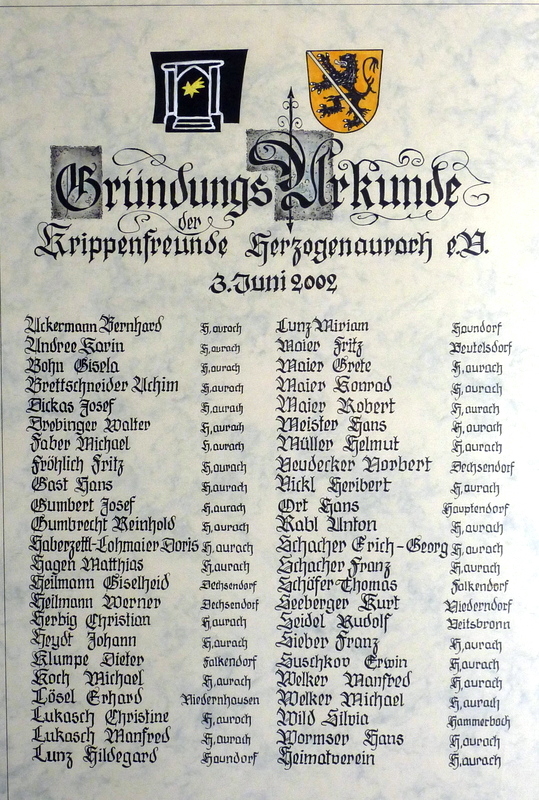 Gründungs Urkunde
der
Krippenfreunde Herzogenaurach e.V.
3. Juni 2002
Ackermann Bernhard H,aurach
Andree Karin H,aurach
Bohn Gisela H,aurach
Brettschneider Achim H,aurach
Dickas Josef H,aurach
Drebinger Walter H,aurach
Faber Michael H,aurach
Fröhlich Fritz H,aurach
Gast Hans H,aurach
Gumbert Josef H,aurach
Gumbrecht Reinhold H,aurach
Haberzettl-Lohmaier Doris H,aurach
Hagen Matthias H,aurach
Heilmann Giselheid Dechsendorf
Heilmann Werner Dechsendorf
Herbig Christian H,aurach
Heydt Johann H,aurach
Klumpe Dieter Falkendorf
Koch Michael H,aurach
Lösel Erhard Niedernhausen
Lukasch Christine H,aurach
Lukasch Manfred H,aurach
Lunz Hildegard Haundorf
Lunz Miriam Haundorf
Maier Fritz Beutelsdorf
Maier Grete H,aurach
Maier Konrad H,aurach
Maier Robert H,aurach
Meister Hans H,aurach
Müller Helmut H,aurach
Neudecker Norbert Dechsendorf
Nickl Heribert H,aurach
Ort Hans Hauptendorf
Rabl Anton H,aurach
Schacher Erich-Georg H,aurach
Schacher Franz H,aurach
Schöfer Thomas Falkendorf
Seeberger Kurt Niederndorf
Seidel Rudolf Veitsbronn
Sieber Franz H,aurach
Suschkov Erwin H,aurach
Welker Manfred H,aurach
Welker Michael H,aurach
Wild Silvia Hammerbach
Wormser Hans H,aurach
Heimatverein H,aurach